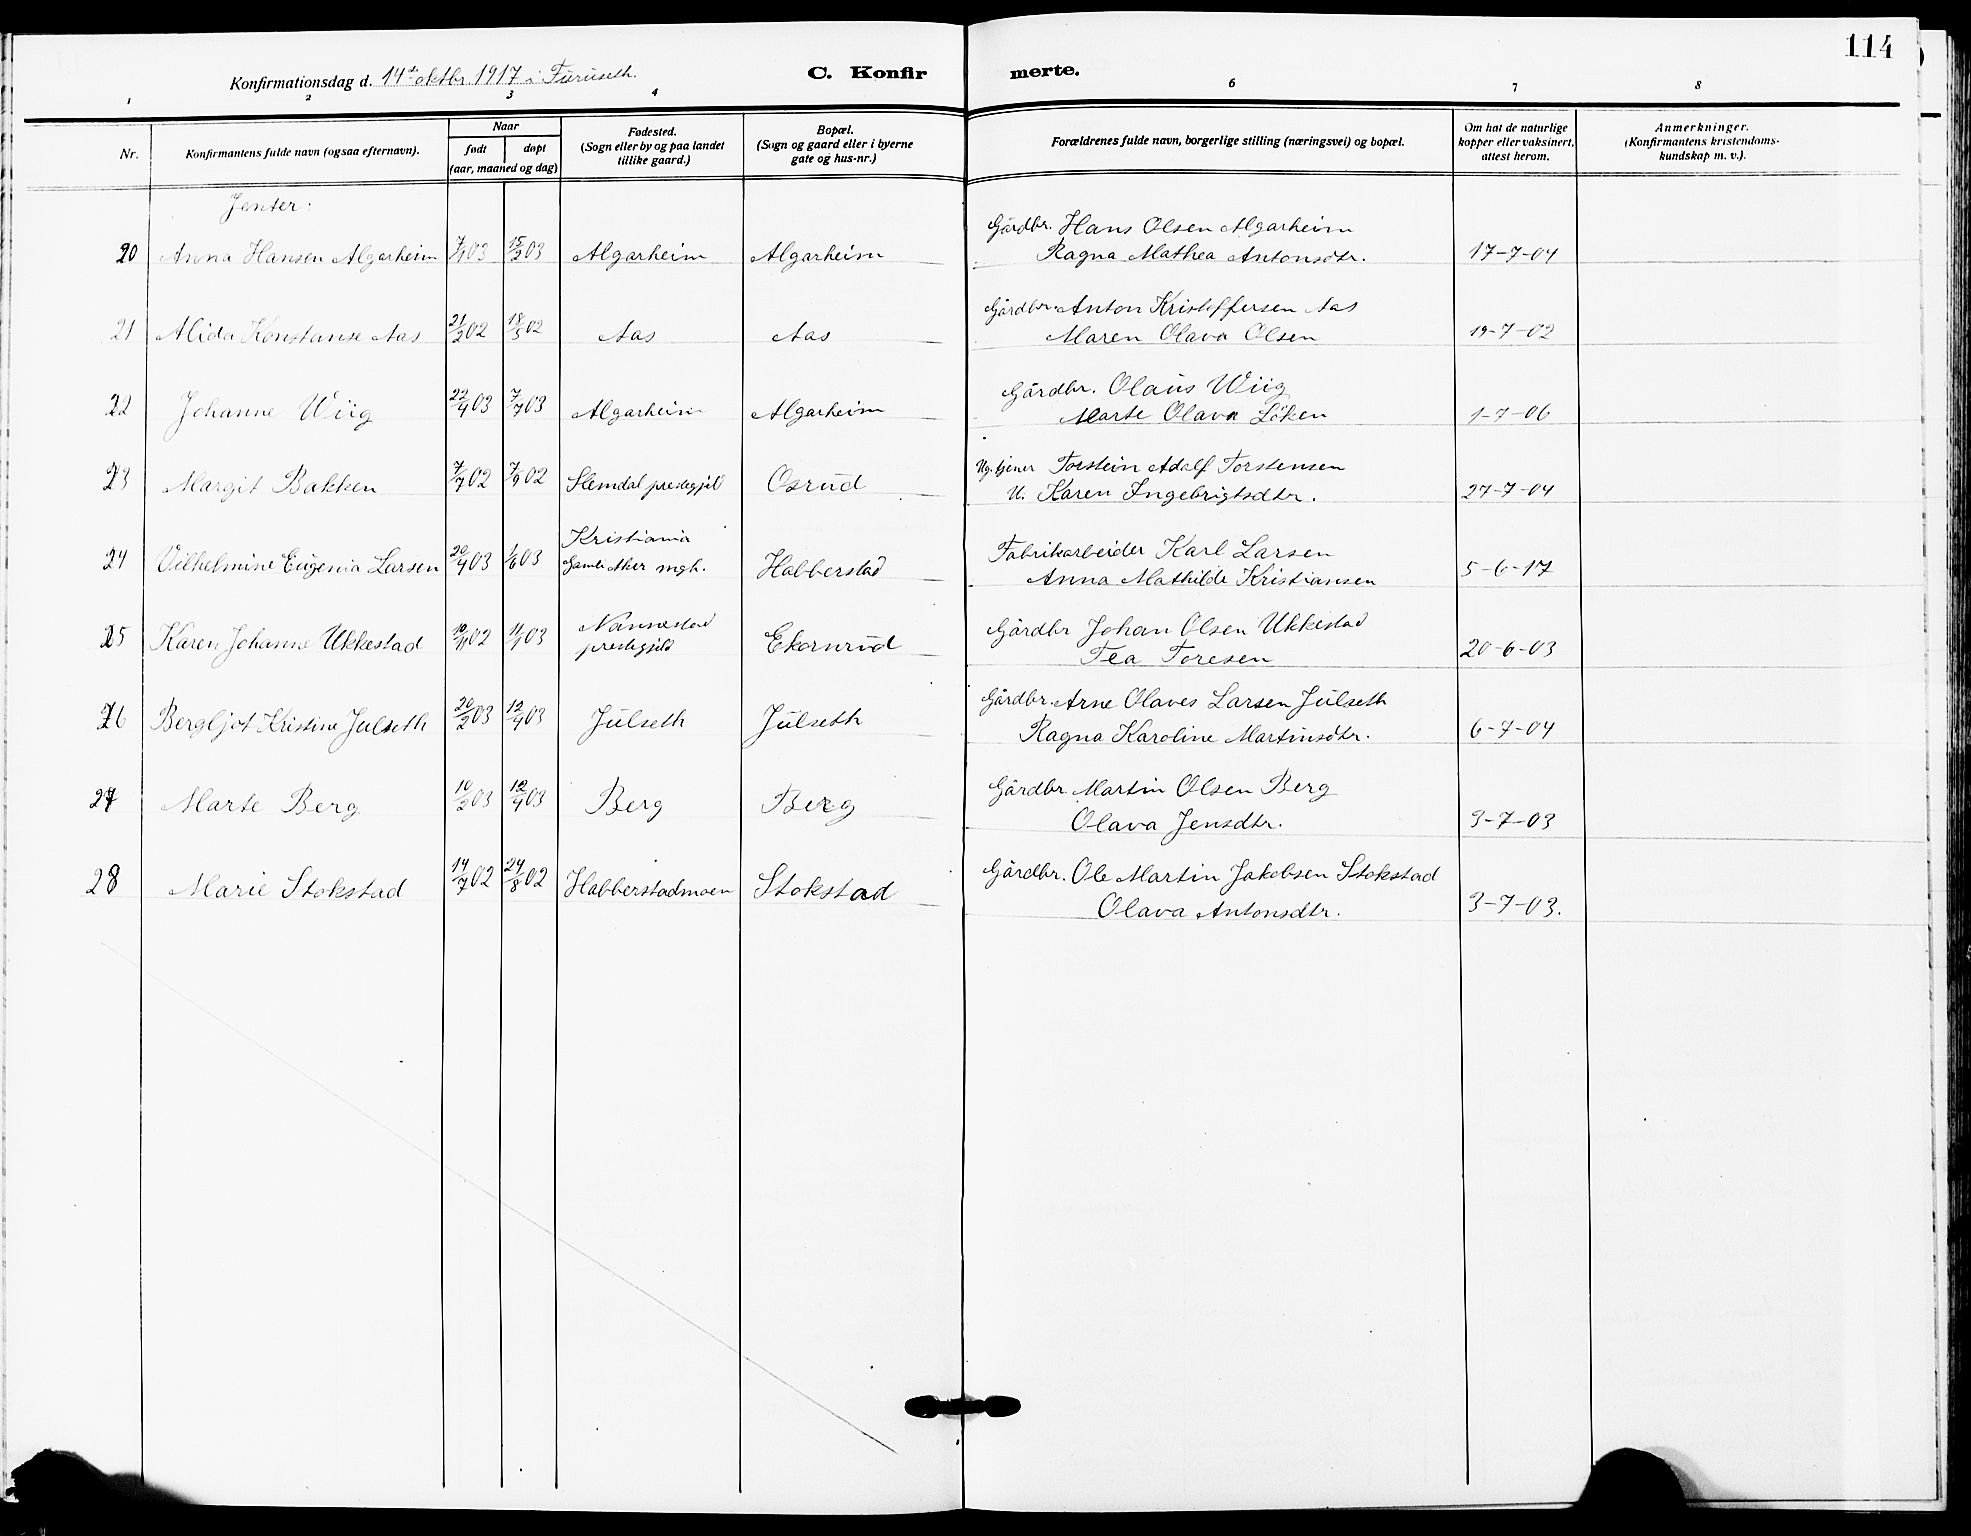 114
Konfirmationsdag d. 14de oktbr. 1917 i Furuseth.
C. Konfirmerte.
1 2 3 4 6 7 8
Nr.
Konfirmantens fulde navn (ogsaa efternavn).
Naar
født døpt
(aar, maaned og dag)
Fødested.
(Sogn eller by og paa landet
tillike gaard.)
Bopæl.
(Sogn og gaard eller i byerne
gate og hus-nr.)
Forældrenes fulde navn, borgerlige stilling (næringsvei) og bopæl.
Om hat de naturlige
kopper eller vaksinert,
attest herom.
Anmerkninger.
(Konfirmantens kristendoms-
kundskap m. v.).
Jenter:
Gårdbr. Hans Olsen Algarheim
20 Anna Hansen Algarheim 7/1 03 15/2 03 Algarheim Algarheim Ragna Mathea Antonsdtr. 17-7-04
Gårdbr. Anton Kristoffersen Aas
21 Alida Konstanse Aas 21/2 02 18/5 02 Aas Aas Maren Olava Olsen 19-7-02
Gårdbr. Olaus Wiig
22 Johanne Wiig 22/4 03 7/7 03 Algarheim Algarheim Marte Olava Löken 1-7-06
Ug. tjener Torstein Adolf Torstensen
23 Margit Bakken 7/7 02 7/9 02 Slemdal prestegjeld Osrud U. Karen Ingebrigtsdtr. 27-7-04
Kristiania
Fabrikarbeider Karl Larsen
24 Vilhelmine Eugenia Larsen 20/4 03 1/6 03 Gamle Aker mgh. Habberstad Anna Mathilde Kristiansen 5-6-17
Nannestad
Gårdbr Johan Olsen Ukkestad
25 Karen Johanne Ukkestad 10/11 02 11/1 03 prestegjeld Ekornrud Tea Toresen 20-6-03
Gårdbr. Arne Olaves Larsen Julseth
26 Bergljot Kristine Julseth 20/2 03 12/4 03 Julseth Julseth Ragna Karoline Martinsdtr. 6-7-04
Gårdbr Martin Olsen Berg
27 Marte Berg 10/2 03 12/4 03 Berg Berg Olava Jensdtr. 3-7-03
Gårdbr. Ole Martin Jakobsen Stokstad
28 Marie Stokstad 14/7 02 24/8 02 Habberstadmoen Stokstad Olava Antonsdtr. 3-7-03.